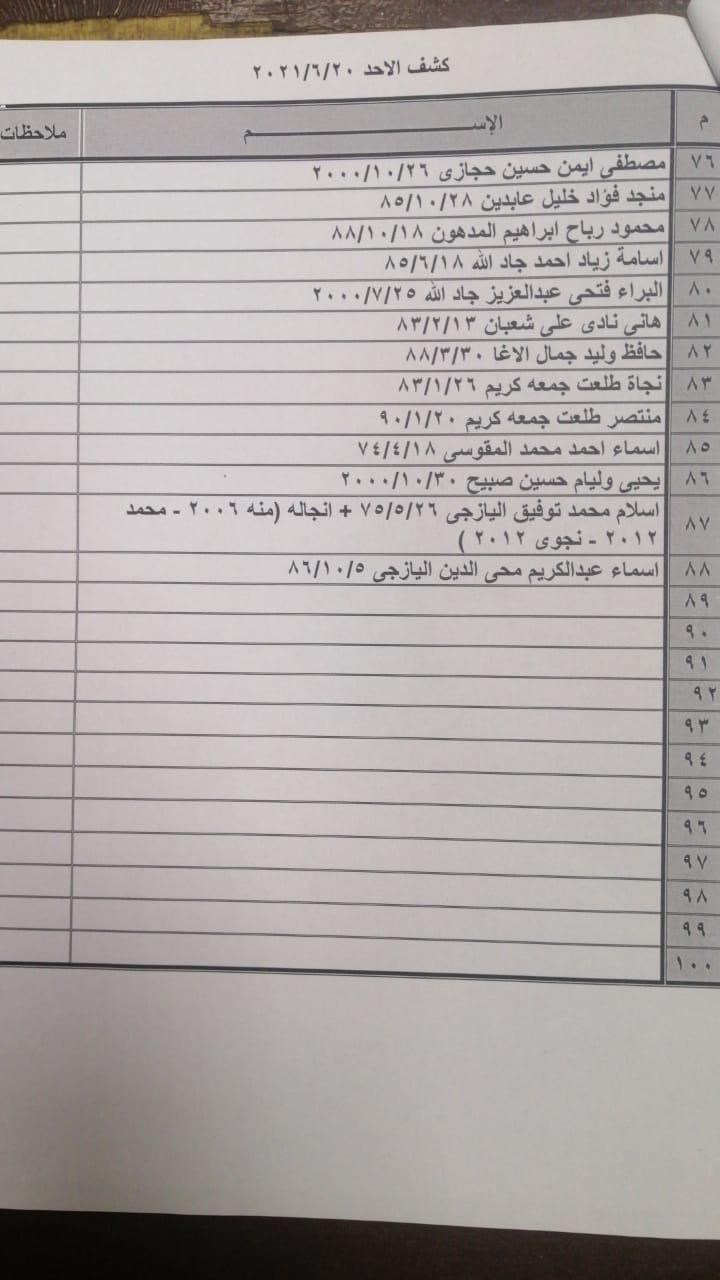 كشف الاحد ٢٠٢١/٦/٢٠
م الإســـــــــم ملاحظات
٧٦ مصطفى ايمن حسين حجازى ٢٠٠٠/١٠/٢٦
٧٧ منجد فؤاد خليل عابدين ٨٥/١٠/٢٨
٧٨ محمود رباح ابراهيم المدهون ٨٨/١٠/١٨
٧٩ اسامة زياد احمد جاد الله ٨٥/٦/١٨
٨٠ البراء فتحى عبدالعزيز جاد الله ٢٠٠٠/٧/٢٥
٨١ هانى نادى على شعبان ٨٣/٢/١٣
٨٢ حافظ وليد جمال الاغا ٨٨/٣/٣٠
٨٣ نجاة طلعت جمعه كريم ٨٣/١/٢٦
٨٤ منتصر طلعت جمعه كريم ٩٠/١/٢٠
٨٥ اسماء احمد محمد المقوسى ٧٤/٤/١٨
٨٦ يحيى وليام حسين صبيح ٢٠٠٠/١٠/٣٠
٨٧ اسلام محمد توفيق اليازجى ٧٥/٥/٢٦ + انجاله (منه ٢٠٠٦ - محمد
٢٠١٢ - نجوى ٢٠١٢ )
٨٨ اسماء عبدالكريم محى الدين اليازجى ٨٦/١٠/٥
٨٩
٩٠
٩١
٩٢
٩٣
٩٤
٩٥
٩٦
٩٧
٩٨
٩٩
١٠٠